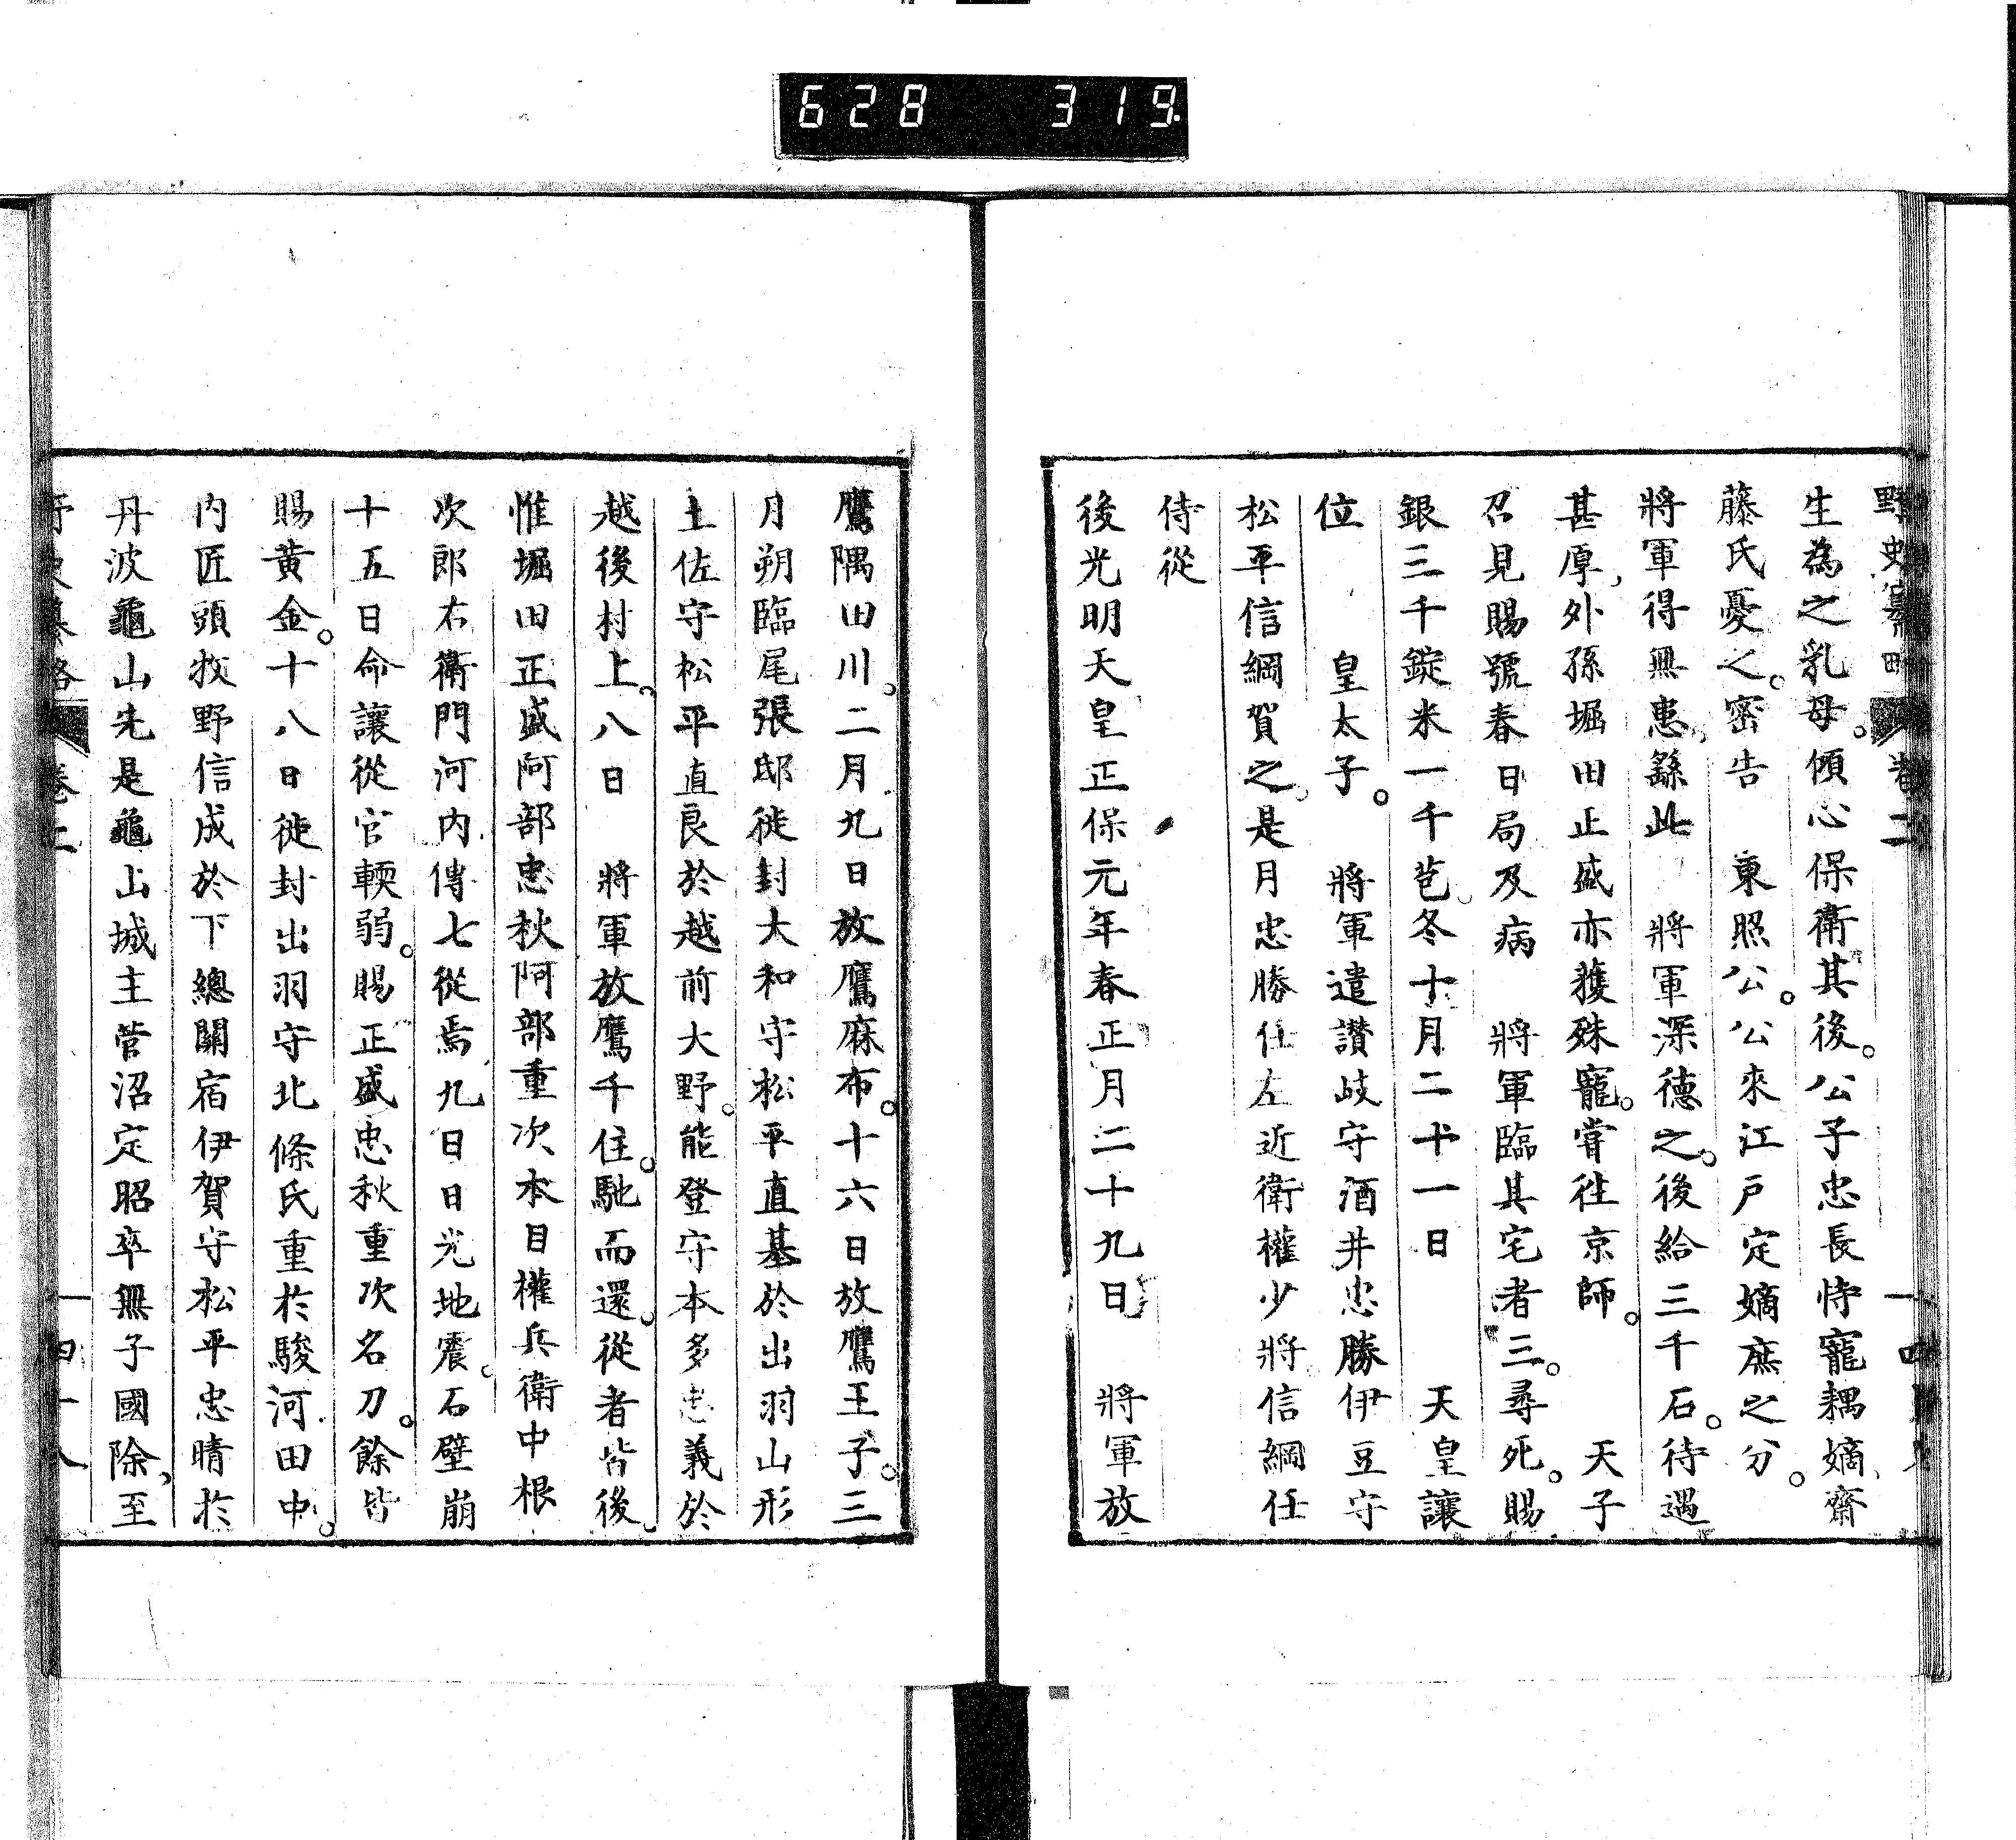 628 319
野史纂略 卷二
生為之乳母。傾心保衛其後。公子忠長恃寵耦嫡、齋
藤氏憂之。密告 東照公。公來江戸定嫡庶之分。
將軍得無患、繇此 將軍深德之。後給三千石。待遇
甚厚、外孫堀田正盛亦獲殊寵。嘗往京師。 天子
召見賜號春日局及病 將軍臨其宅者三。尋死。賜
銀三千錠米一千苞、冬十月二十一日 天皇讓
位 皇太子。 將軍遣讃岐守酒井忠勝伊豆守
松平信綱賀之。是月忠勝任左近衛權少將信綱任
侍從
後光明天皇正保元年春正月二十九日 將軍放
鷹隅田川。二月九日放鷹麻布。十六日放鷹王子。三
月朔臨尾張邸徙封大和守松平直基於出羽山形
土佐守松平直良於越前大野。能登守本多忠義於
越後村上。八日 將軍放鷹千住。馳而還。從者皆後。
惟堀田正盛阿部忠秋阿部重次本目權兵衛中根
次郎右衛門河內傳七從焉九日日光地震。石壁崩
十五日命讓從官輭弱。賜正盛忠秋重次名刀。餘皆
賜黃金。十八日徙封出羽守北條氏重於駿河田中。
內匠頭牧野信成於下總關宿伊賀守松平忠晴於
丹波龜山先是龜山城主菅沼定昭卒無子國除、至
野史纂略 卷二 一四十八